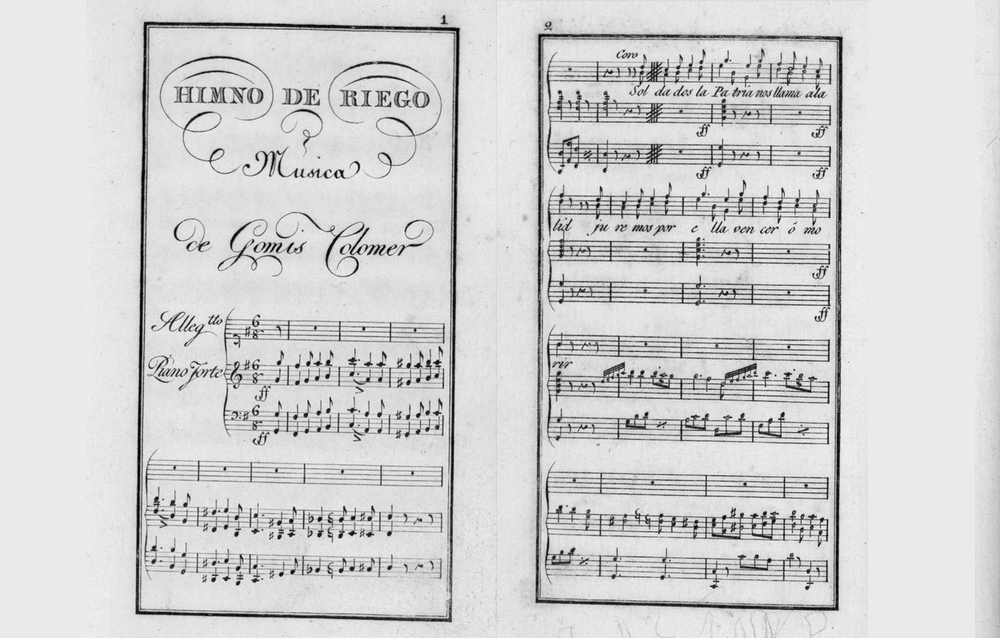 1
HIMNO DE RIEGO
Musica
de Gomis Colomer
Alleg.tto
6
8
Piano Forte
6
8
ff
6
8
ff
2
Coro
Sol da dos la Pa tria nos llama a la
ff ff
ff ff
lid ju re mos por e lla ven cer ó mo
ff
ff
rir